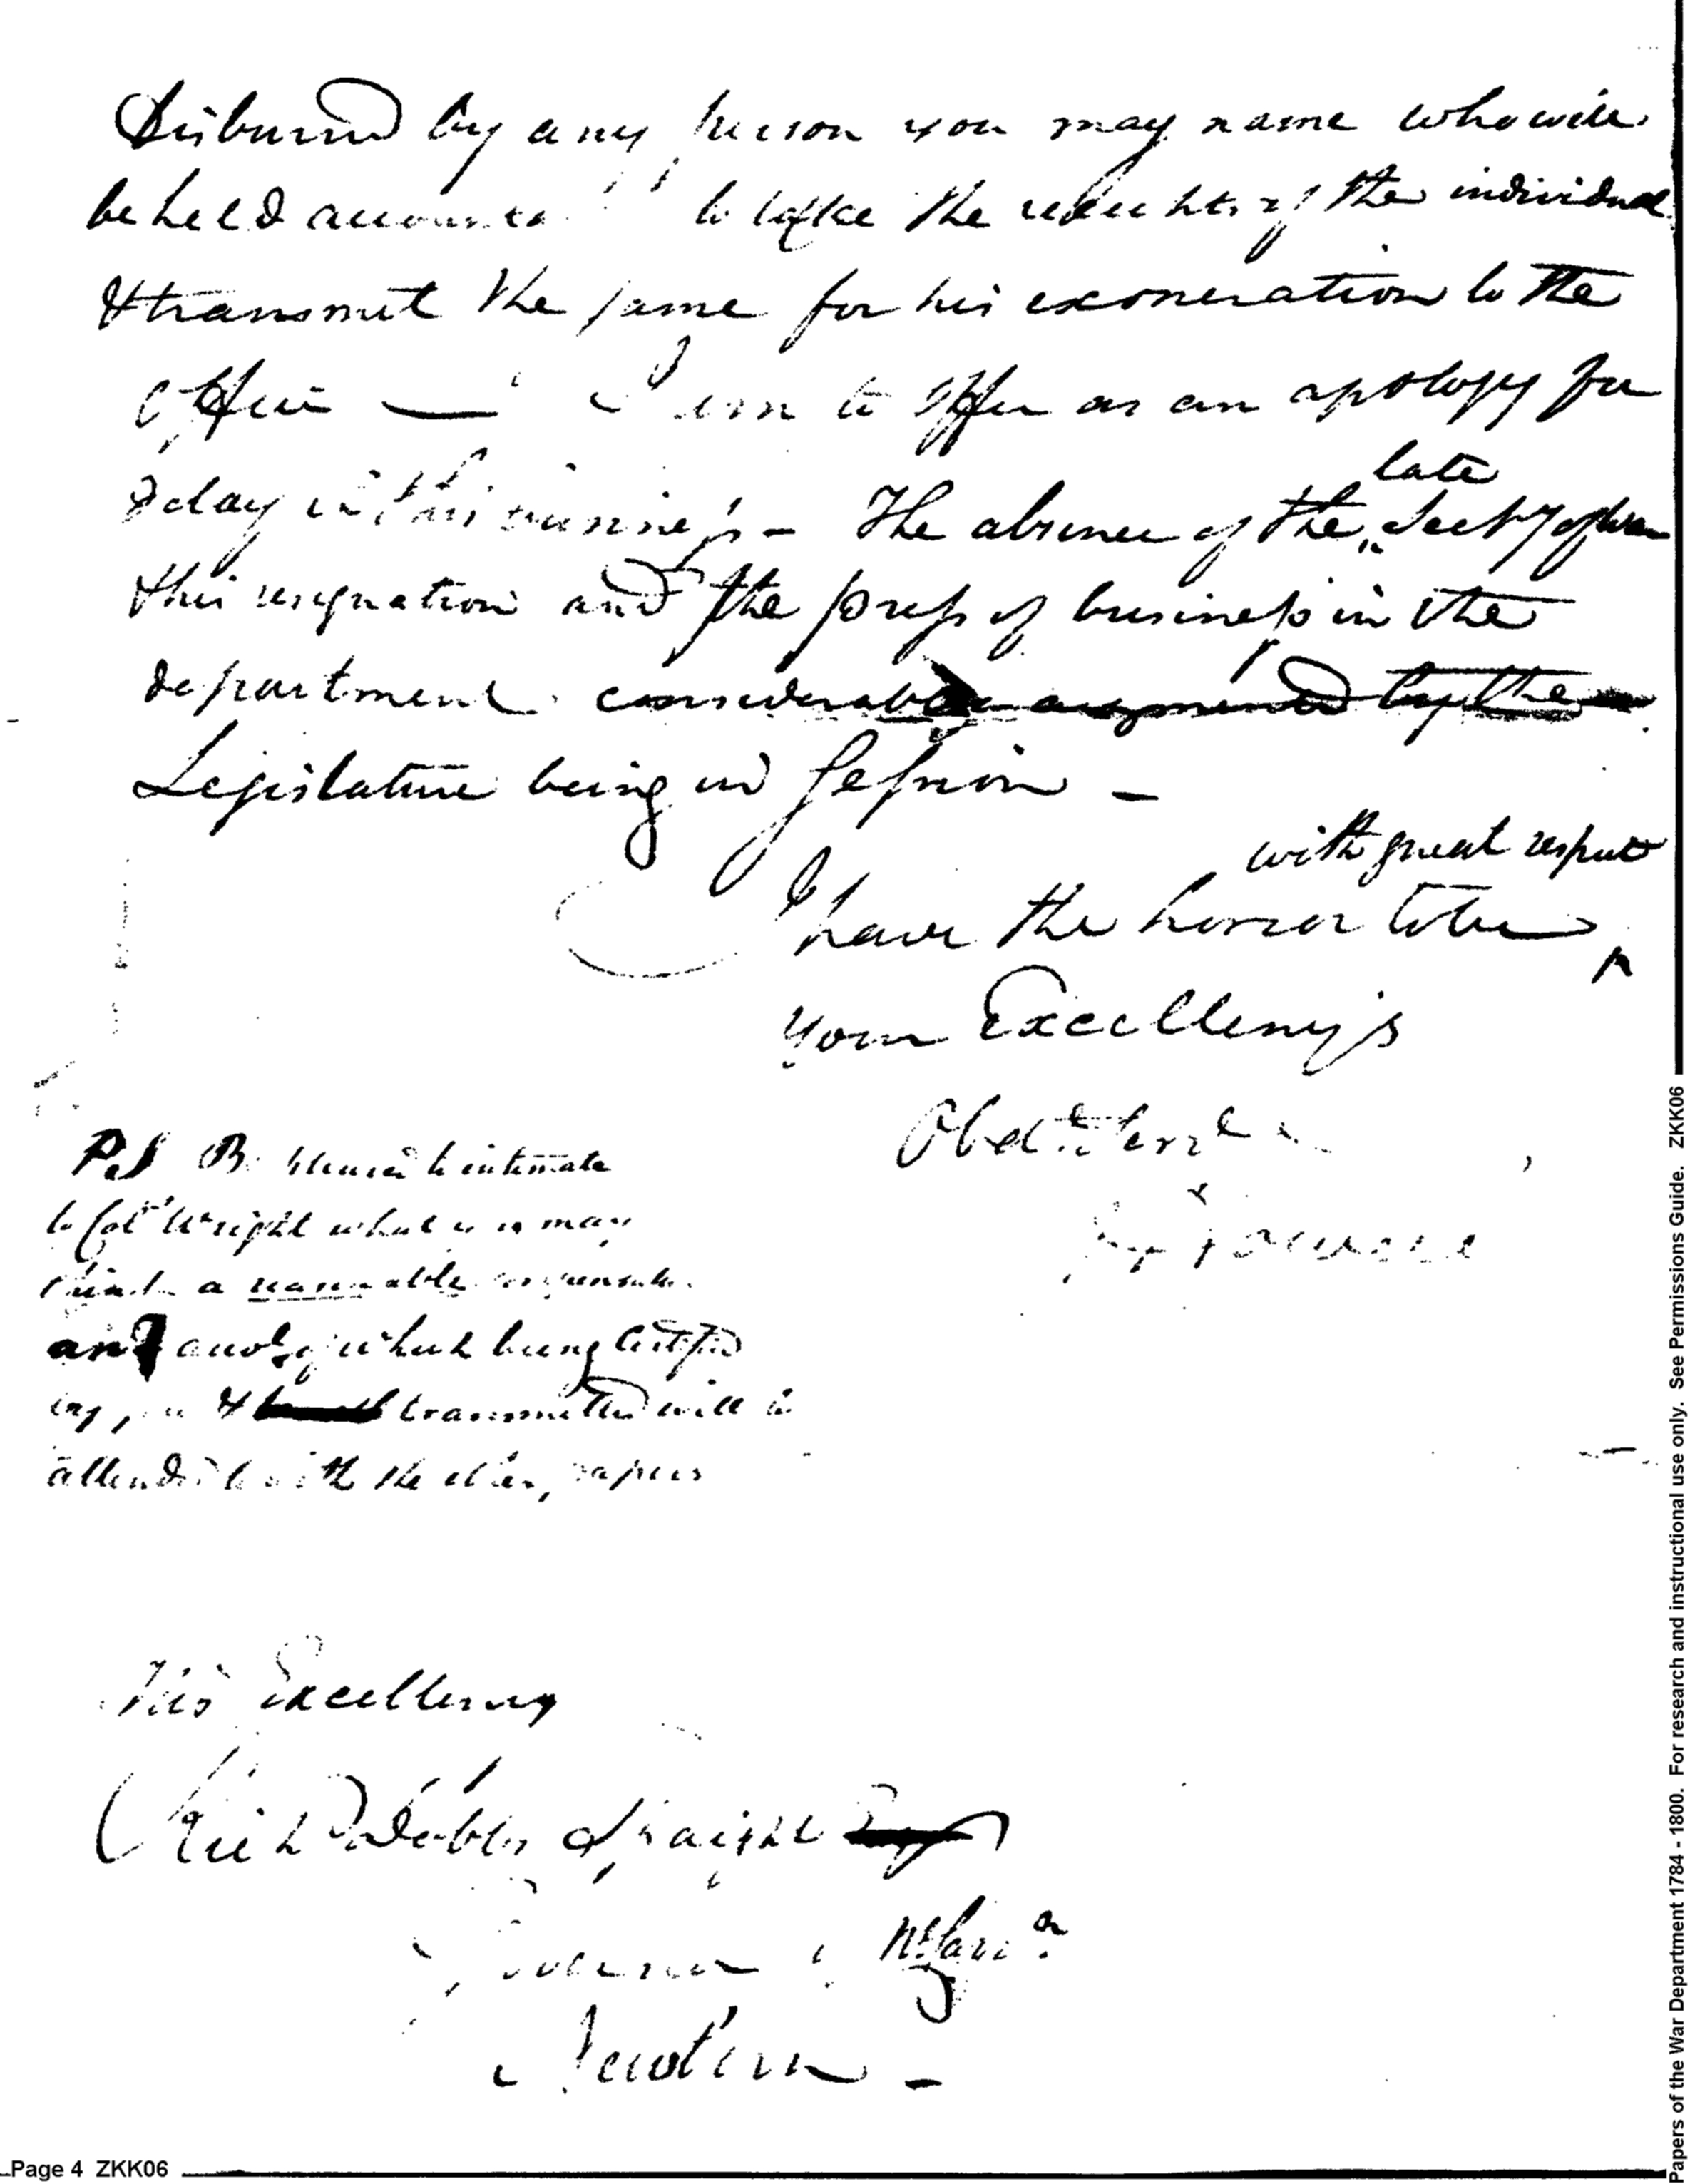 Disbursed by any person you may name who will
be held to take the receipts of the individual
& transmit the same for his exoneration to the
Office — I am to offer as an apology for
delay in this business - The absence of the late Secty of War
this resignation and the press of business in the
department considerable augmented by the
Legislature being in Session -
with great respect
I have the honor to be ^
Your Excellency's
Obed
PS B pleased to intimate
to Col Wright what you may
think a reasonable compensation
and account of which being Certified
by you & transmitted will be
attended to with the other papers
His Excellency
Rich Dobbs Spaight
Governor of No Caro a
Newbern -
Page 4 ZKK06
Papers of the War Department 1784 - 1800. For research and instructional use only. See Permissions Guide. ZKK06